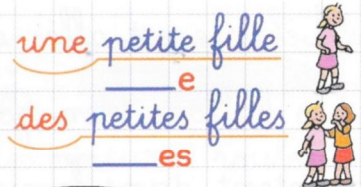 une petite fille
______e
des petites filles
______es